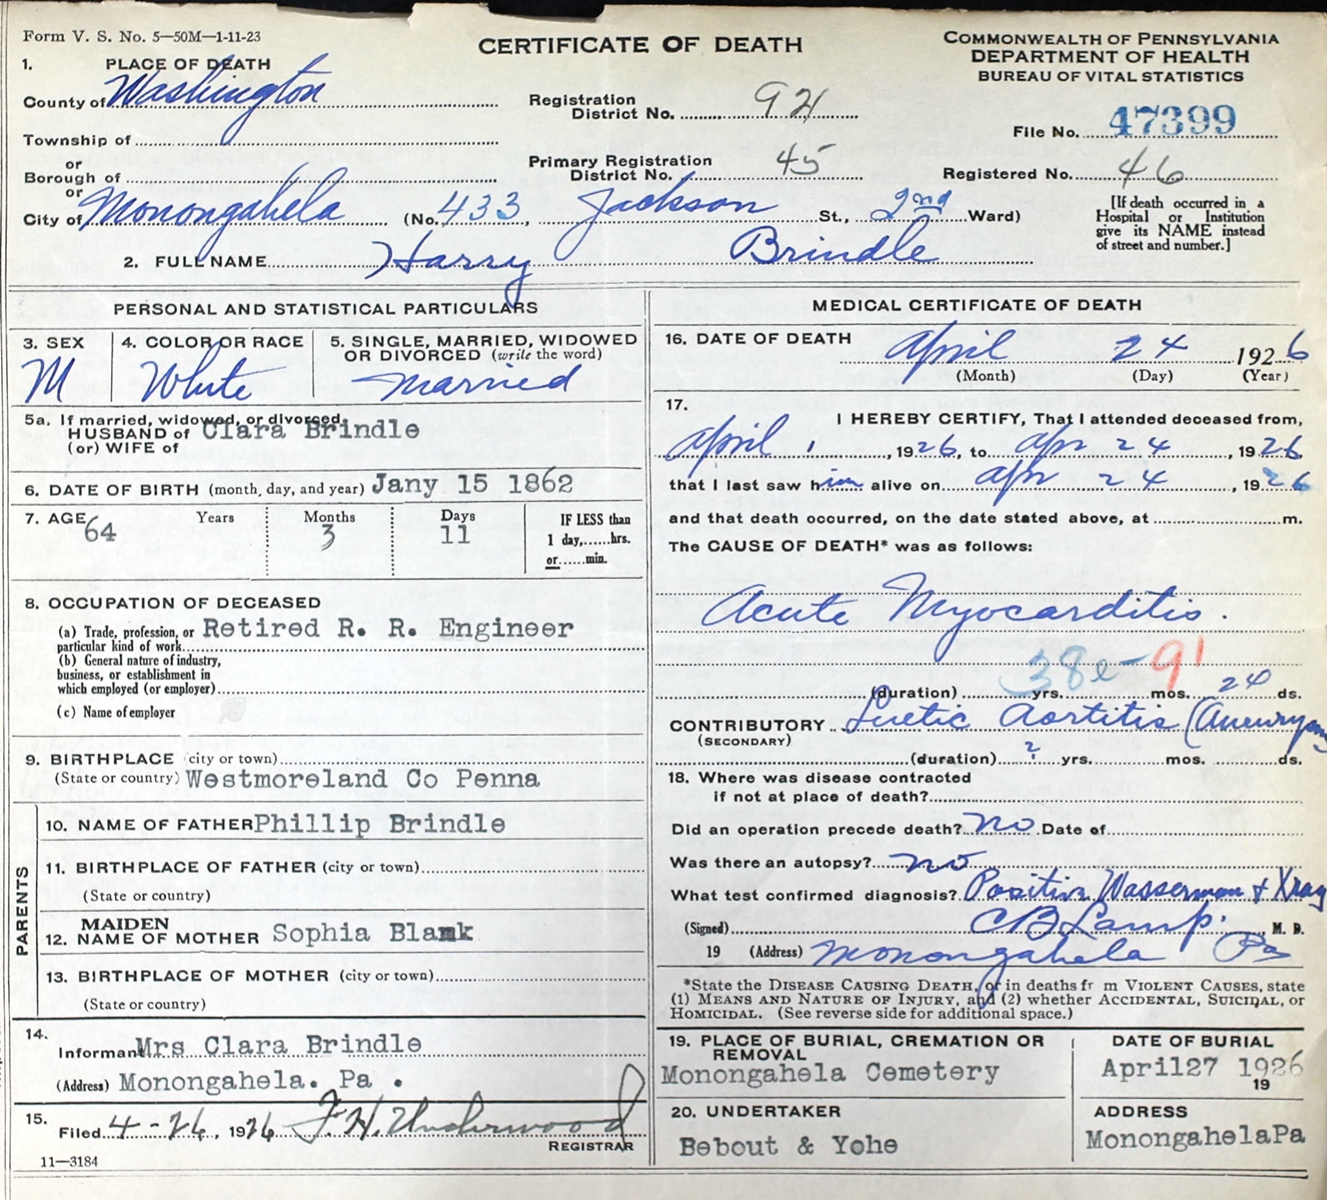 Form V. S. No. 5—50M—1-11-23
CERTIFICATE OF DEATH
COMMONWEALTH OF PENNSYLVANIA
DEPARTMENT OF HEALTH
BUREAU OF VITAL STATISTICS
1. PLACE OF DEATH
County of Washington
Registration District No. 921
File No. 47399
Township of
or
Borough of
Primary Registration District No. 45
Registered No. 46
or
City of Monongahela (No. 433, Jackson St., 2nd Ward)
[If death occurred in a Hospital or Institution give its NAME instead of street and number.]
2. FULL NAME Harry Brindle
PERSONAL AND STATISTICAL PARTICULARS
3. SEX M
4. COLOR OR RACE White
5. SINGLE, MARRIED, WIDOWED OR DIVORCED (write the word) Married
5a. If married, widowed, or divorced
HUSBAND of Clara Brindle
(or) WIFE of
6. DATE OF BIRTH (month, day, and year) Jany 15 1862
7. AGE 64 Years 3 Months 11 Days
IF LESS than
1 day,......hrs.
or......min.
8. OCCUPATION OF DECEASED
(a) Trade, profession, or particular kind of work Retired R. R. Engineer
(b) General nature of industry, business, or establishment in which employed (or employer)
(c) Name of employer
9. BIRTHPLACE (city or town)
(State or country) Westmoreland Co Penna
PARENTS
10. NAME OF FATHER Phillip Brindle
11. BIRTHPLACE OF FATHER (city or town)
(State or country)
12. MAIDEN NAME OF MOTHER Sophia Blank
13. BIRTHPLACE OF MOTHER (city or town)
(State or country)
14. Informant Mrs Clara Brindle
(Address) Monongahela. Pa .
15. Filed 4-26, 1926 F. H. Underwood
REGISTRAR
11—3184
MEDICAL CERTIFICATE OF DEATH
16. DATE OF DEATH April 24 1926
(Month) (Day) (Year)
17. I HEREBY CERTIFY, That I attended deceased from,
April 1, 1926, to apr 24, 1926
that I last saw him alive on apr 24, 1926
and that death occurred, on the date stated above, at m.
The CAUSE OF DEATH* was as follows:
Acute Myocarditis.
38e-91
(duration) yrs. mos. 24 ds.
CONTRIBUTORY Luetic Aortitis (Aneurysm
(SECONDARY)
(duration) ? yrs. mos. ds.
18. Where was disease contracted
if not at place of death?
Did an operation precede death? no Date of
Was there an autopsy? no
What test confirmed diagnosis? Positive Wasserman + Xray
(Signed) CB Lamp. M. D.
19 (Address) Monongahela Pa
*State the DISEASE CAUSING DEATH, or in deaths fr m VIOLENT CAUSES, state
(1) MEANS AND NATURE OF INJURY, and (2) whether ACCIDENTAL, SUICIDAL, or
HOMICIDAL. (See reverse side for additional space.)
19. PLACE OF BURIAL, CREMATION OR REMOVAL
Monongahela Cemetery
DATE OF BURIAL
April27 1926
19
20. UNDERTAKER
Bebout & Yohe
ADDRESS
MonongahelaPa